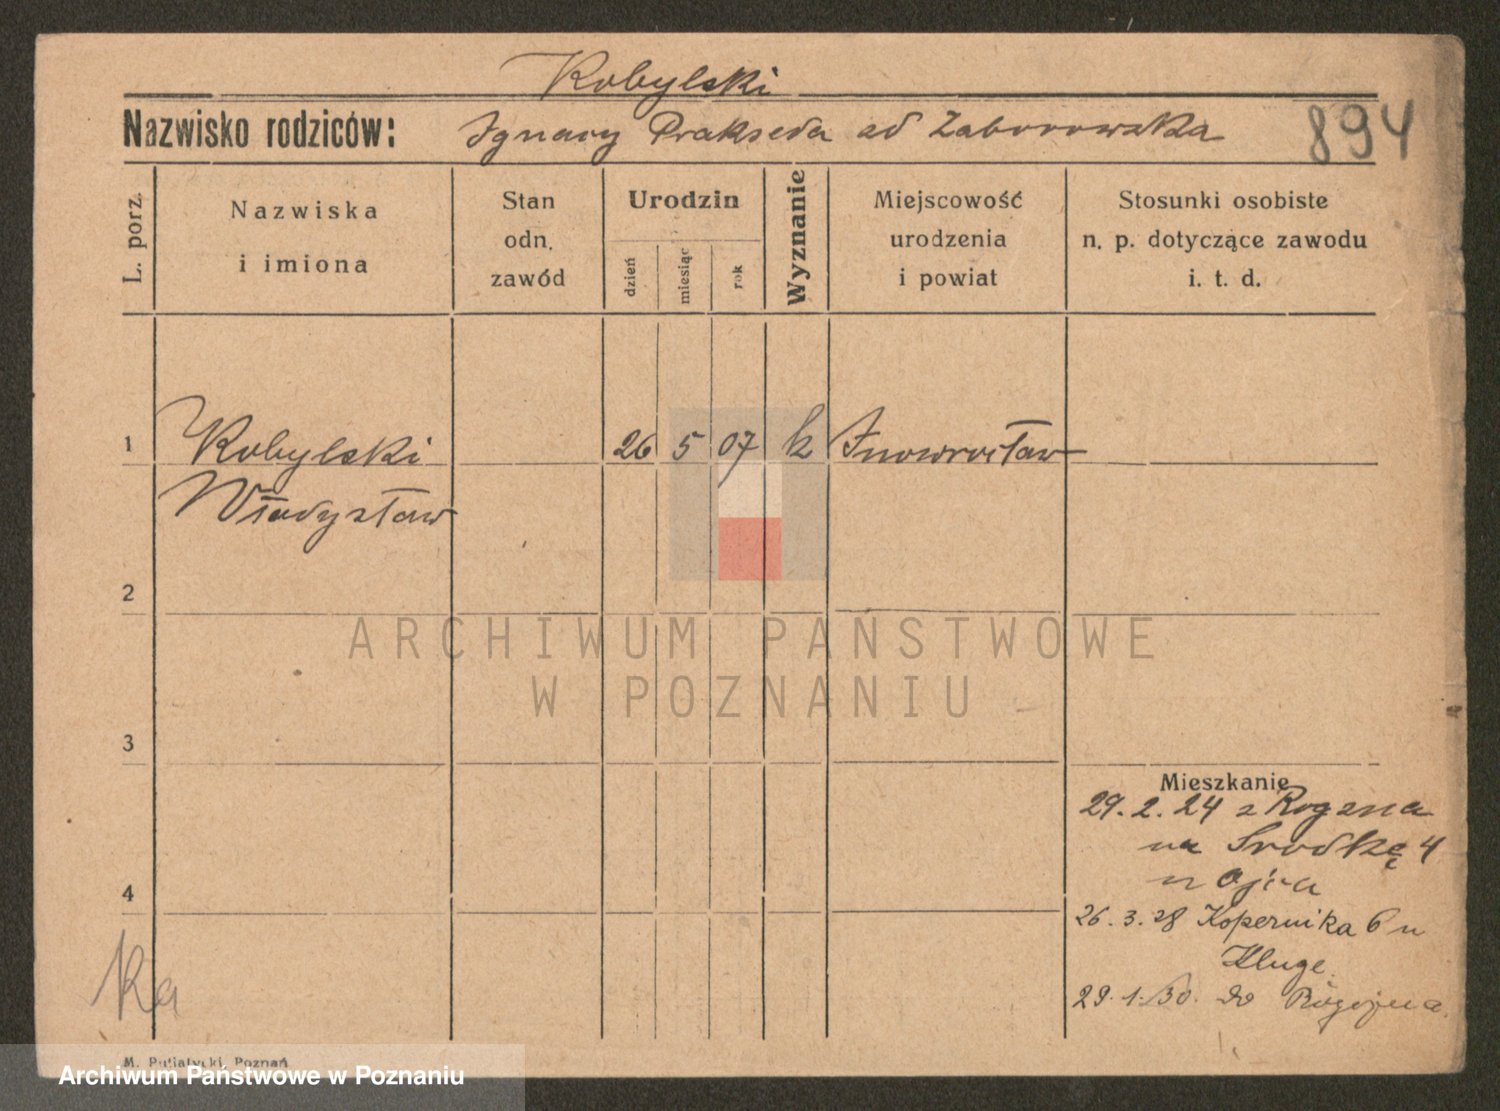 Kobylski
Nazwisko rodziców: Ignacy Prakseda od Zaborowska 894
L. porz.
Nazwiska
i imiona
Stan
odn.
zawód
Urodzin
dzień
miesiąc
rok
Wyznanie
Miejscowość
urodzenia
i powiat
Stosunki osobiste
n. p. dotyczące zawodu
i. t. d.
1 Kobylski 26 5 07 k Inowrocław
Władysław
2
ARCHIWUM PAŃSTWOWE
W POZNANIU
3
Mieszkanie
29. 2. 24 z Rogzna
na Srodkę 4
u Ojca
4
26. 3. 28 Kopernika 6 u
Kluge.
29. 1. 30. do Rogoźna.
Ka
M. Putiatycki, Poznań
Archiwum Państwowe w Poznaniu